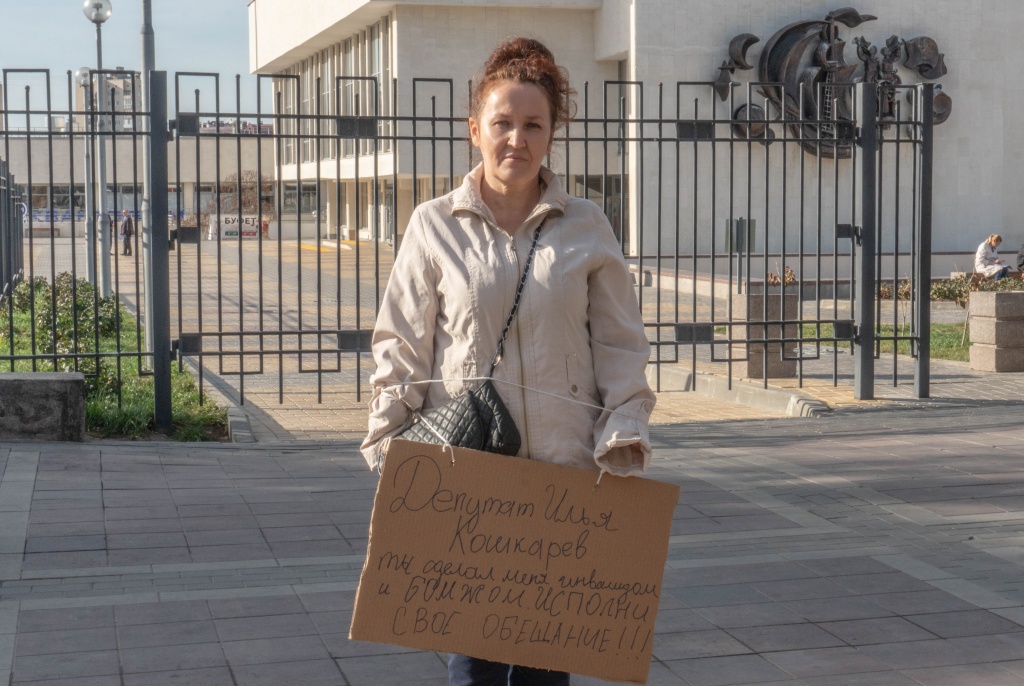 БУФЕТ
Депутат Илья
Кошкарев
ты сделал меня инвалидом
и БОМЖОМ. ИСПОЛНИ
СВОЕ ОБЕЩАНИЕ!!!